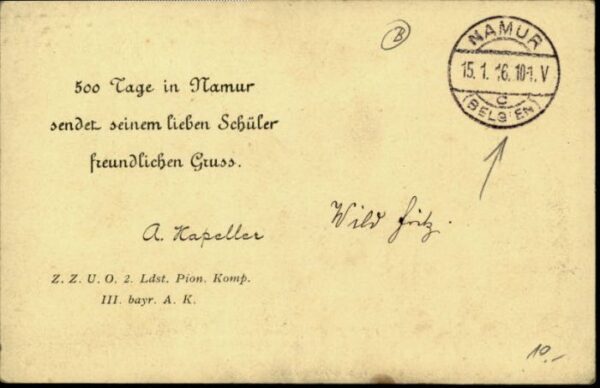 B
NAMUR
15.1.16.10-1.V
C
(BELGIEN)
500 Tage in Namur
sendet seinem lieben Schüler
freundlichen Gruss.
A. Kapeller
Wild Fritz.
Z. Z. U. O. 2. Ldst. Pion. Komp.
III. bayr. A. K.
10.-